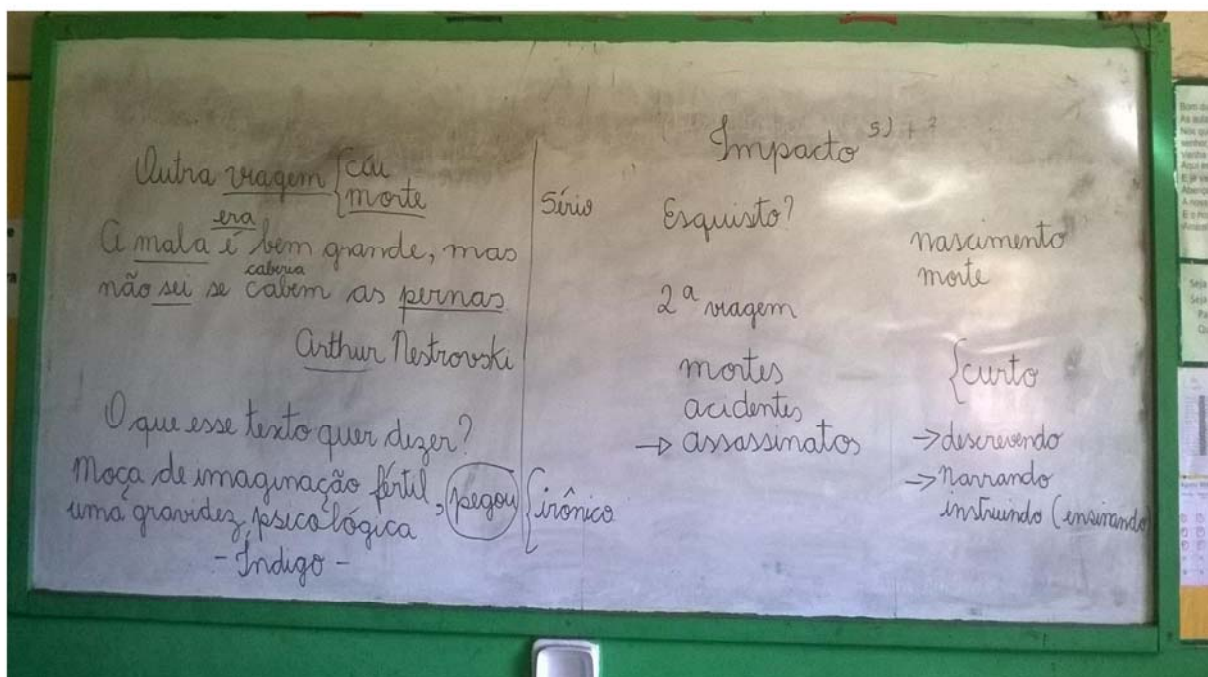 Outra viagem { céu
morte
era
A mala é bem grande, mas
caberia
não sei se cabem as pernas
Arthur Nestrovski
O que esse texto quer dizer?
Moça de imaginação fértil, pegou { irônico
uma gravidez psicológica
- Índigo -
Sério
Impacto 5) + ?
Esquisto?
2ª viagem
mortes
acidentes
→ assassinatos
nascimento
morte
{ curto
→ descrevendo
→ Narrando
instruindo (ensinando)